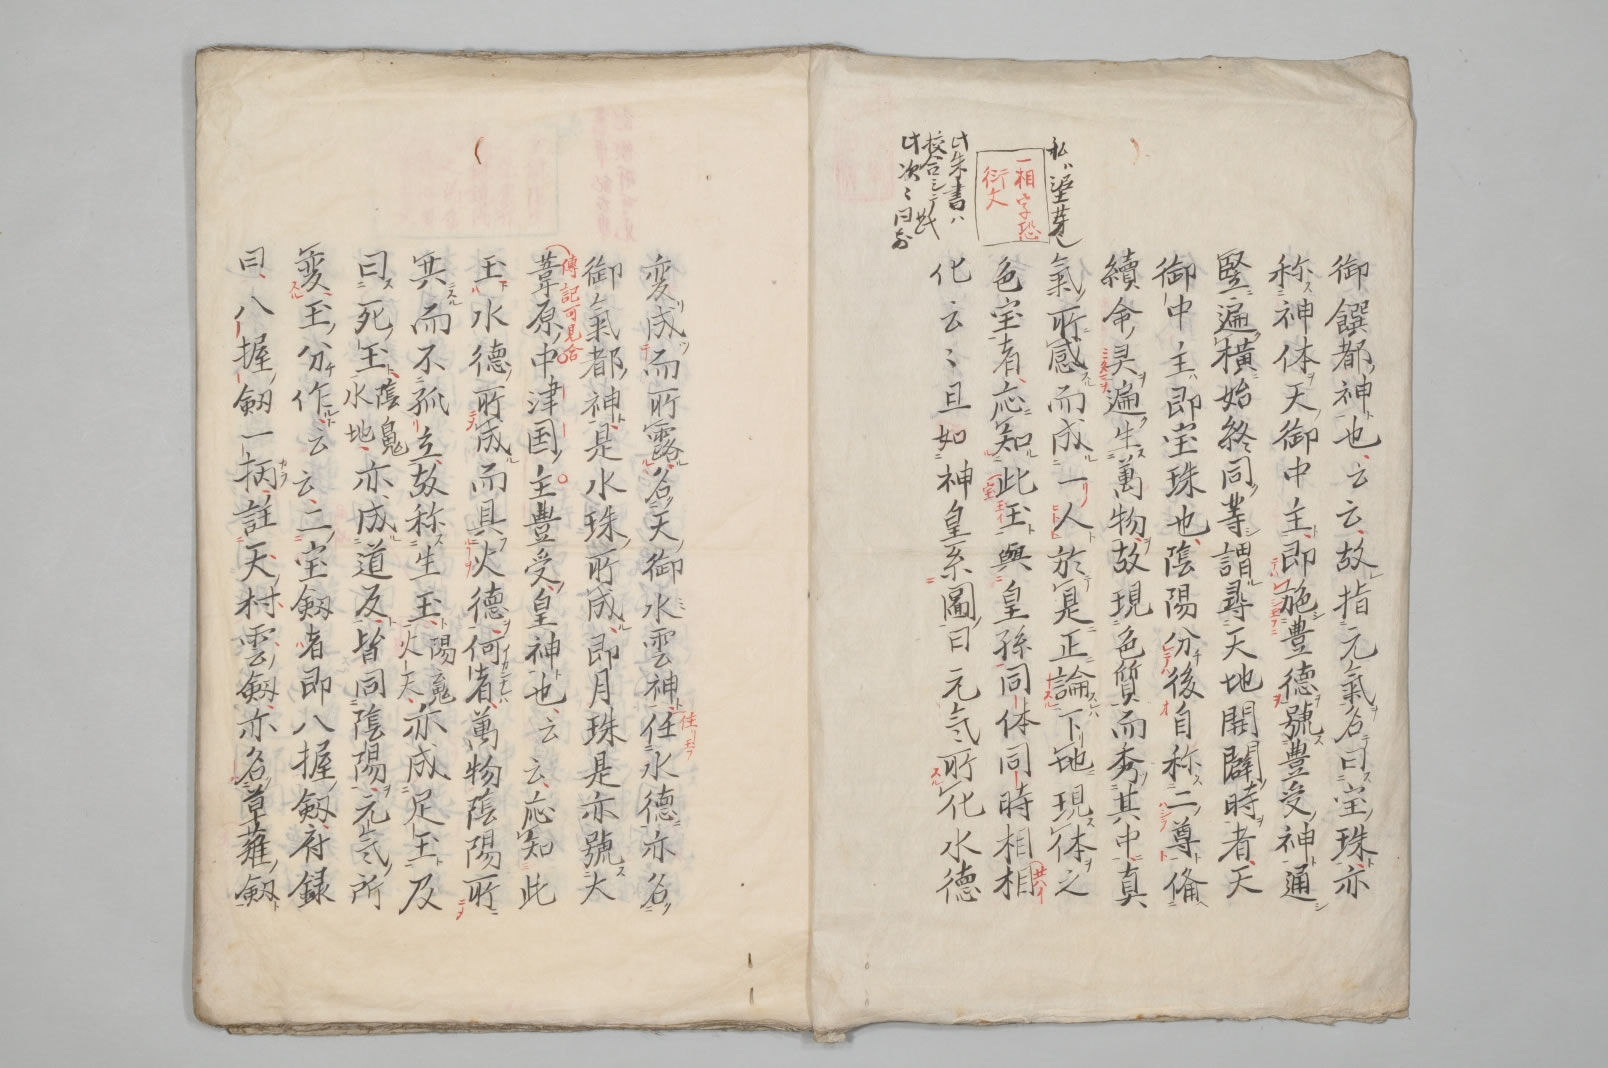 御饌都神也云云故指元氣名曰宝珠亦
称神体天御中主即施豊徳號豊受神通
竪遍橫始終同等謂尋天地開闢時者天
御中主即宝珠也陰陽分後自称二尊脩
續命灵遍生萬物故現色質而秀其中真
氣所感而成一人於是正論下地現体之
色宝者応知此玉與皇孫同体同時相相
化云〻旦如神皇系圖曰元气所化水德
一相字恐
衍文
此朱書ハ
変成而所露名天御水雲神任水德亦名
御氣都神是水珠所成即月珠是亦號大
葦原中津国主豊受皇神也云云応知此
傳記可見合
玉水德所成而具火德何者萬物陰陽所
具而不孤立故称生玉陽鬼火天亦成足玉及
曰死玉陰鬼水地亦成道反皆同陰陽元气所
変玉分作云云二宝劔者即八握劔府録
曰八握劔一柄註天村雲劔亦名草薙劔